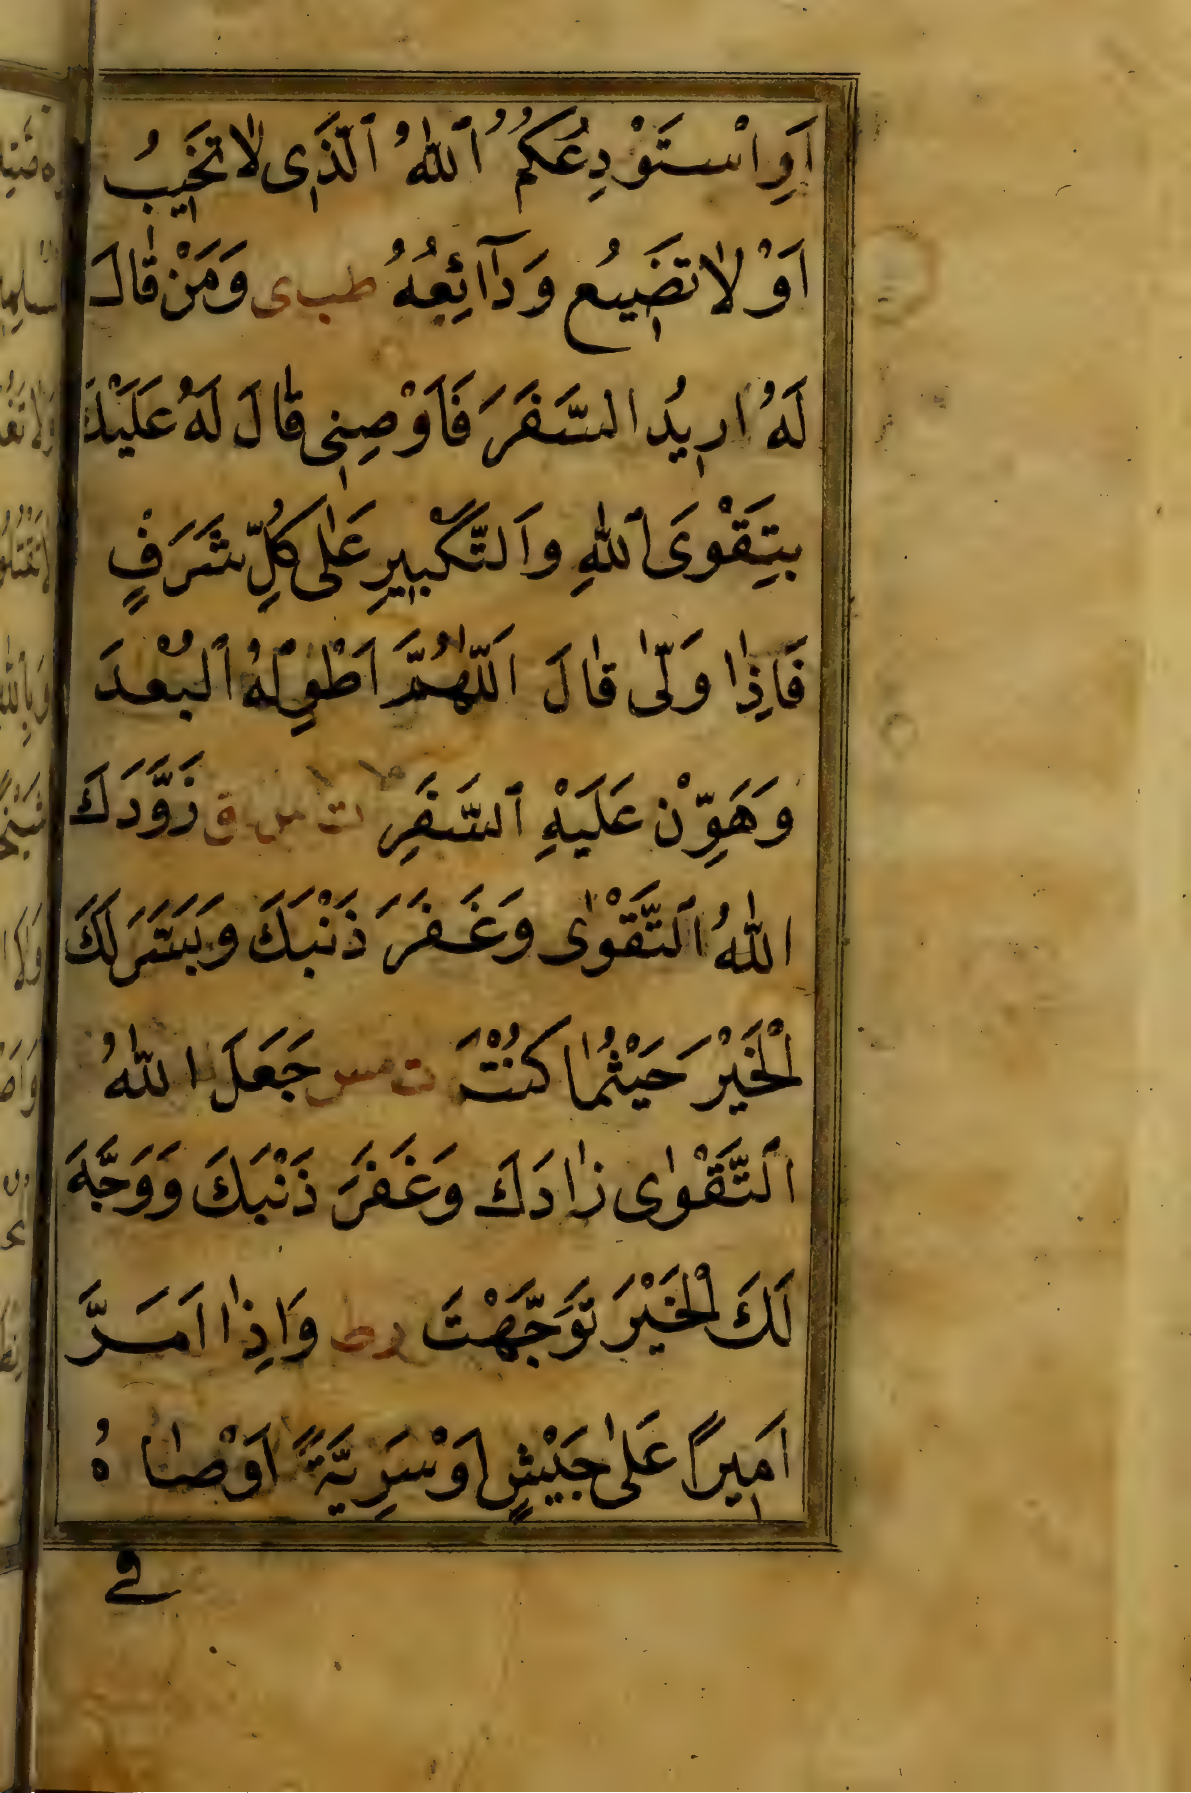 اَوِ اسْتَوْدِعُكُمُ اللّٰهُ الَّذَى لَا تَخَيِبُ
اَوْ لَا تَضَيِعُ وَدَآئِعُهُ طب ى وَمَنْ قَالَ
لَهُ اُرِيدُ السَّفَرَ فَاَوْصِنِى قَالَ لَهُ عَلَيْكَ
بِتَقْوَى اللّٰهِ وَالتَّكْبِيرِ عَلٰى كُلِّ شَرَفٍ
فَاِذَا وَلّٰى قَالَ اَللّٰهُمَّ اَطْوِلَهُ الْبُعْدَ
وَهَوِّنْ عَلَيْهِ السَّفَرِ ت س ق زَوَّدَكَ
اللّٰهُ التَّقْوٰى وَغَفَرَ ذَنْبَكَ وَيَسَّرَ لَكَ
الْخَيْرَ حَيْثُمَا كُنْتَ ت مس جَعَلَ اللّٰهُ
التَّقْوٰى زَادَكَ وَغَفَرَ ذَنْبَكَ وَوَجَّهَ
لَكَ الْخَيْرَ تَوَجَّهْتَ ر ط وَاِذَا اَمَرَّ
اَمِيرًا عَلٰى جَيْشٍ اَوْ سَرِيَّةً اَوْصَاهُ
فے